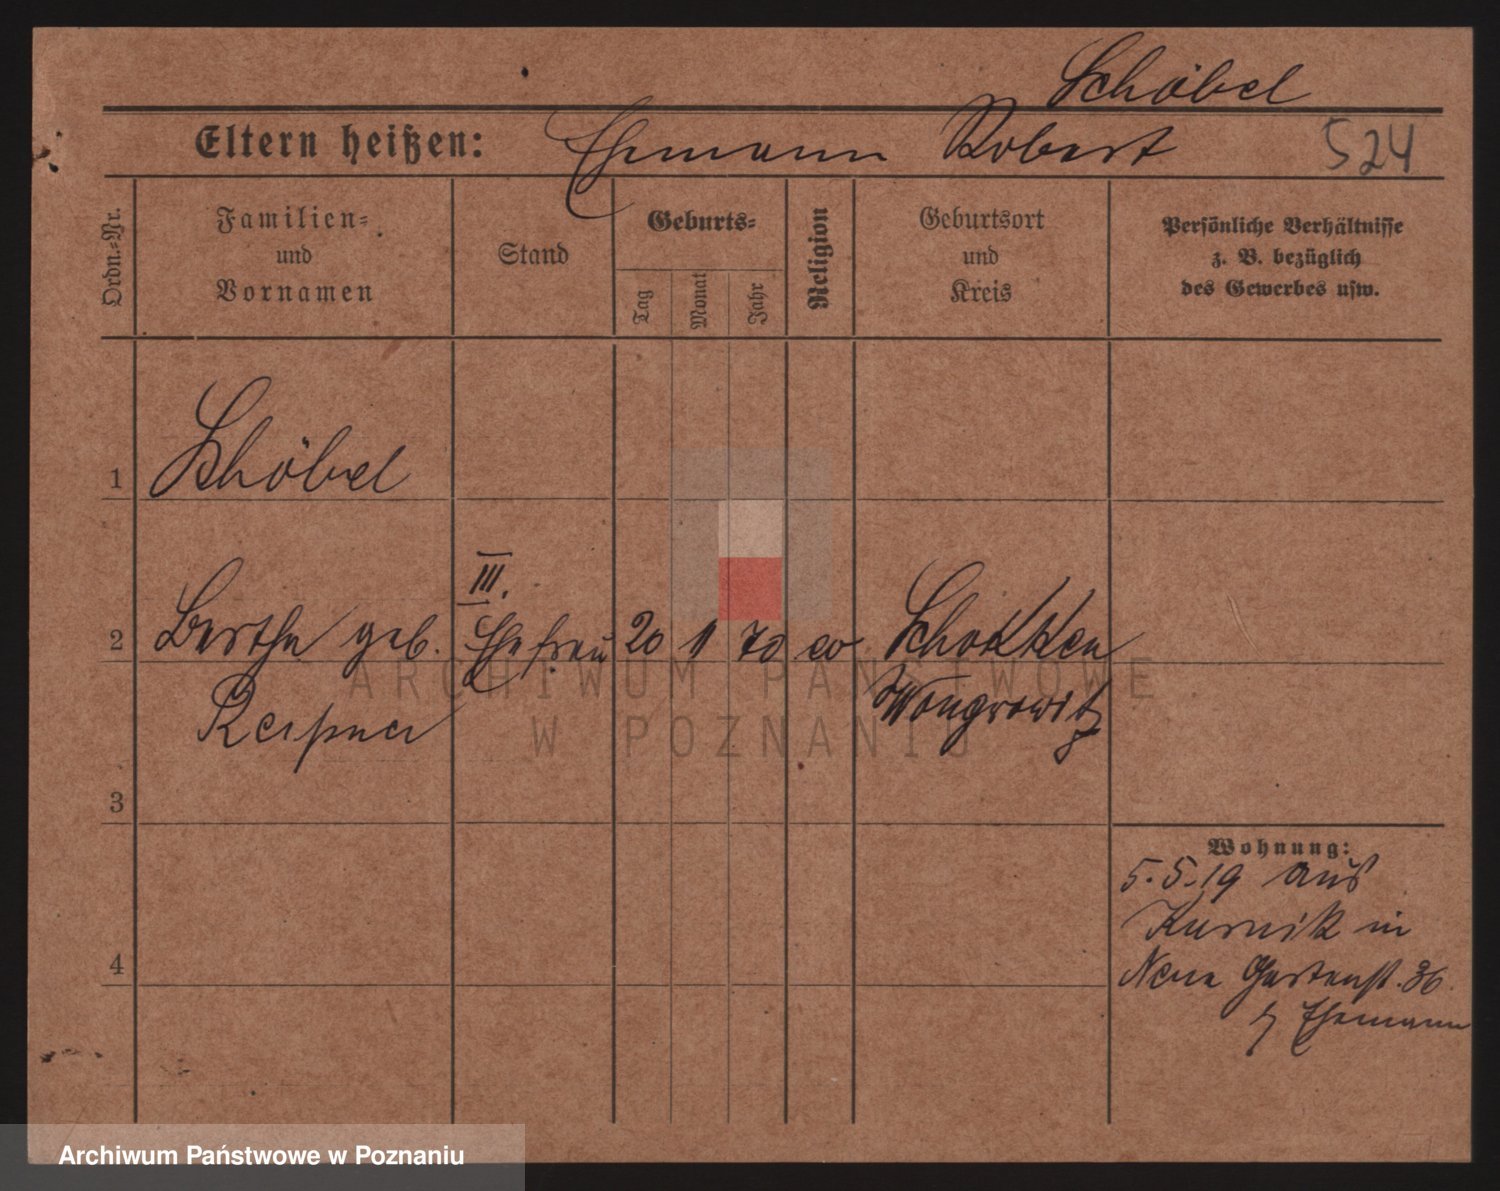 Schöbel
Eltern heißen: Ehemann Robert 524
Ordn.-Nr.
Familien-
und
Vornamen
Stand
Geburts-
Tag
Monat
Jahr
Religion
Geburtsort
und
Kreis
Persönliche Verhältnisse
z. B. bezüglich
des Gewerbes usw.
1 Schöbel
III.
2 Berthe geb. Ehefrau 20 70 Schokken
Wongrowitz
3
4
Wohnung:
5.5.19 aus
Kurnik in
Neue Gartenst. 36
Ehemann
ARCHIWUM PAŃSTWOWE
W POZNANIU
Archiwum Państwowe w Poznaniu